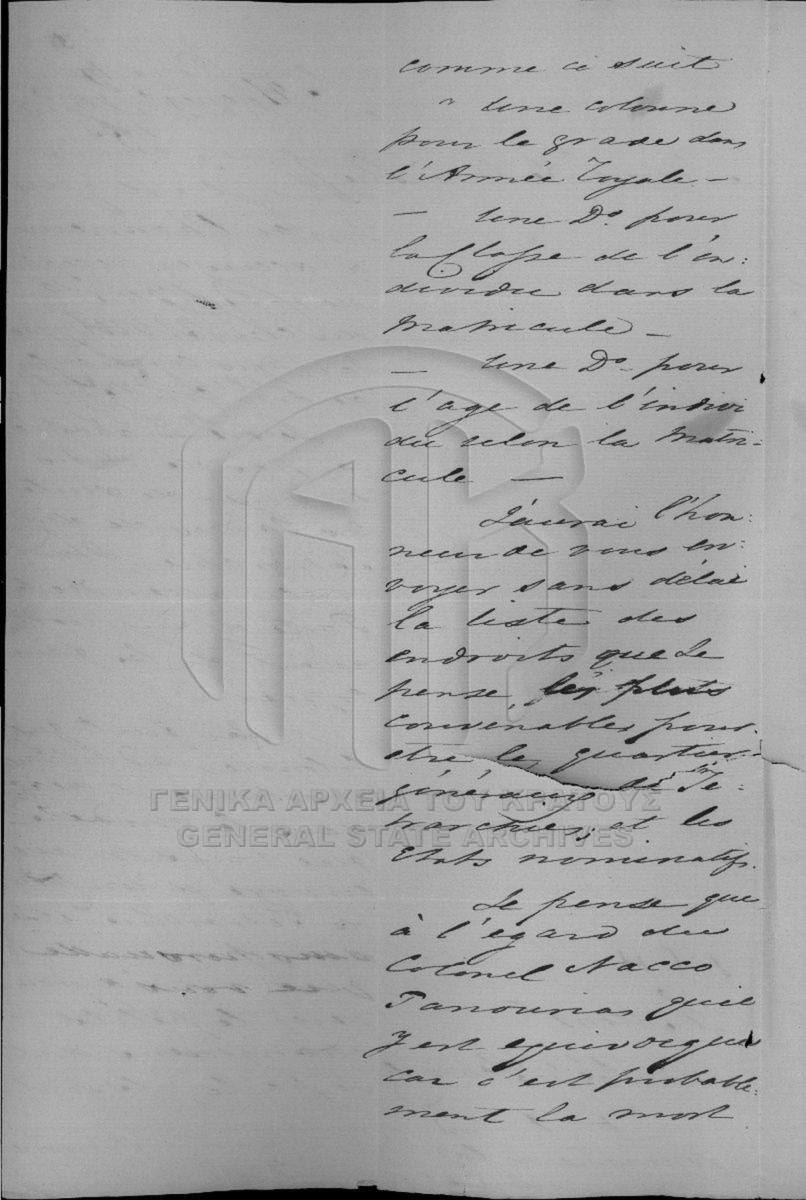 comme ci suit
" Une colonne
pour le grade dans
l'Armée Royale —
— Une Do. pour
la Classe de l'in:
dividu dans la
Matricule —
— Une Do. pour
l'age de l'indivi
du selon la Matri-
cule —
J'aurai l'hon:
neur de vous en:
voyer sans délai
la liste des
endroits que Je
pense les plus
convenables pour
etre les quartiers
généraux des Te-
trarchies, et les
Etats nominatifs.
ΓΕΝΙΚΑ ΑΡΧΕΙΑ ΤΟΥ ΚΡΑΤΟΥΣ
GENERAL STATE ARCHIVES
Je pense que
à l'égard du
Colonel Nacco
Panourias
y est equivoque
car c'est probable:
ment la mort